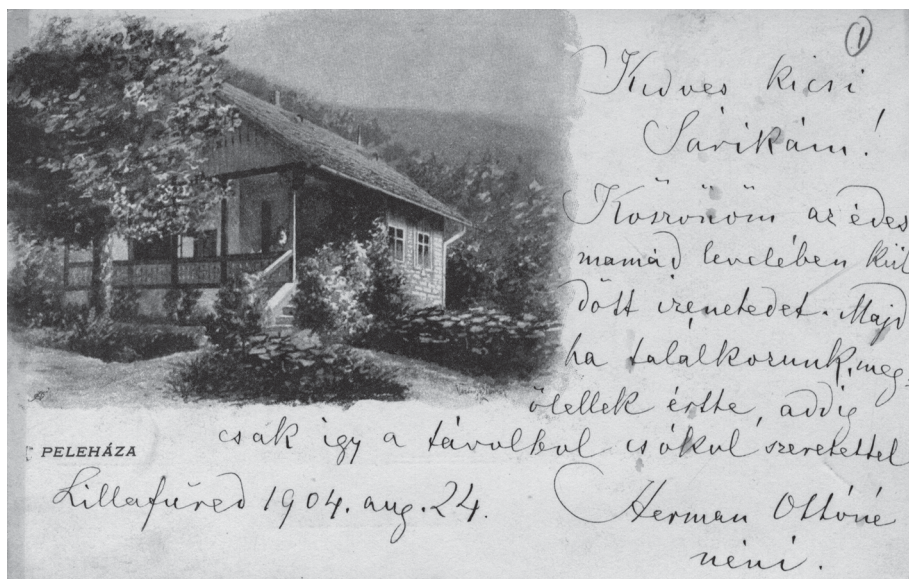 1
Kedves kicsi
Sárikám!
Köszönöm az édes
mamád levelében kül
dött izenetedet. Majd
ha talalkozunk, meg-
ölellek érte, addig
csak igy a távolbol csókol szeretettel
PELEHÁZA
Lillafüred 1904. aug. 24.
Herman Ottóné
néni.